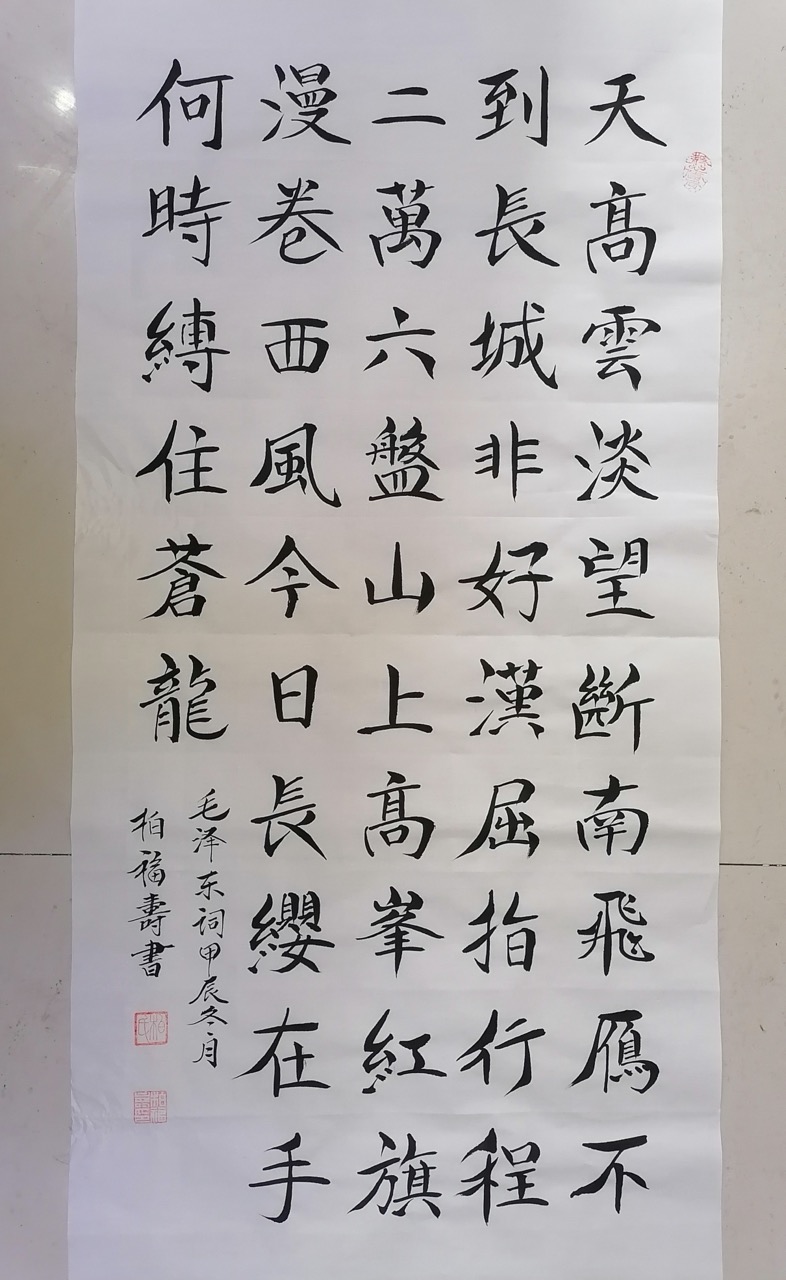 天高雲淡望斷南飛鴈不
到長城非好漢屈指行程
二萬六盤山上高峯紅旗
漫卷西風今日長纓在手
何時縛住蒼龍
毛泽东词甲辰冬月
柏福壽書